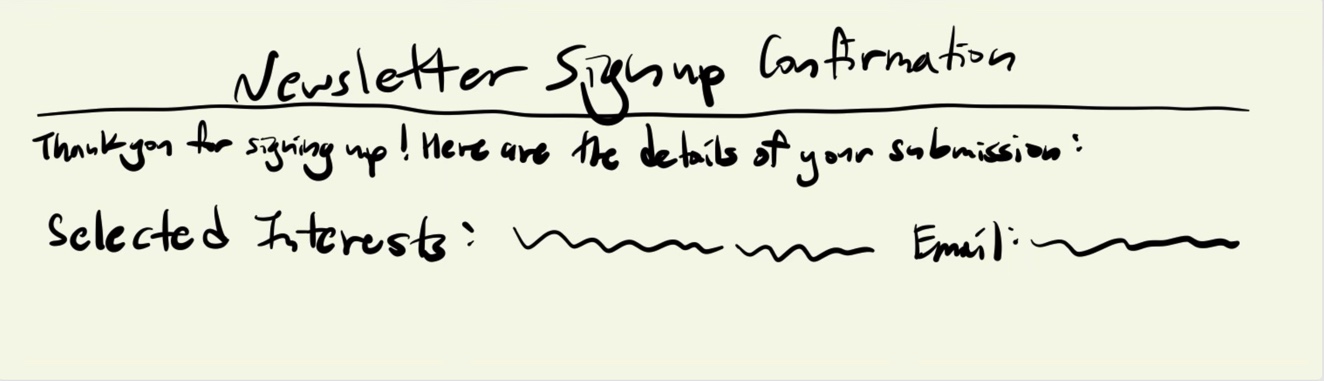 Newsletter Signup Confirmation
Thank you for signing up! Here are the details of your submission:
Selected Interests: Email: